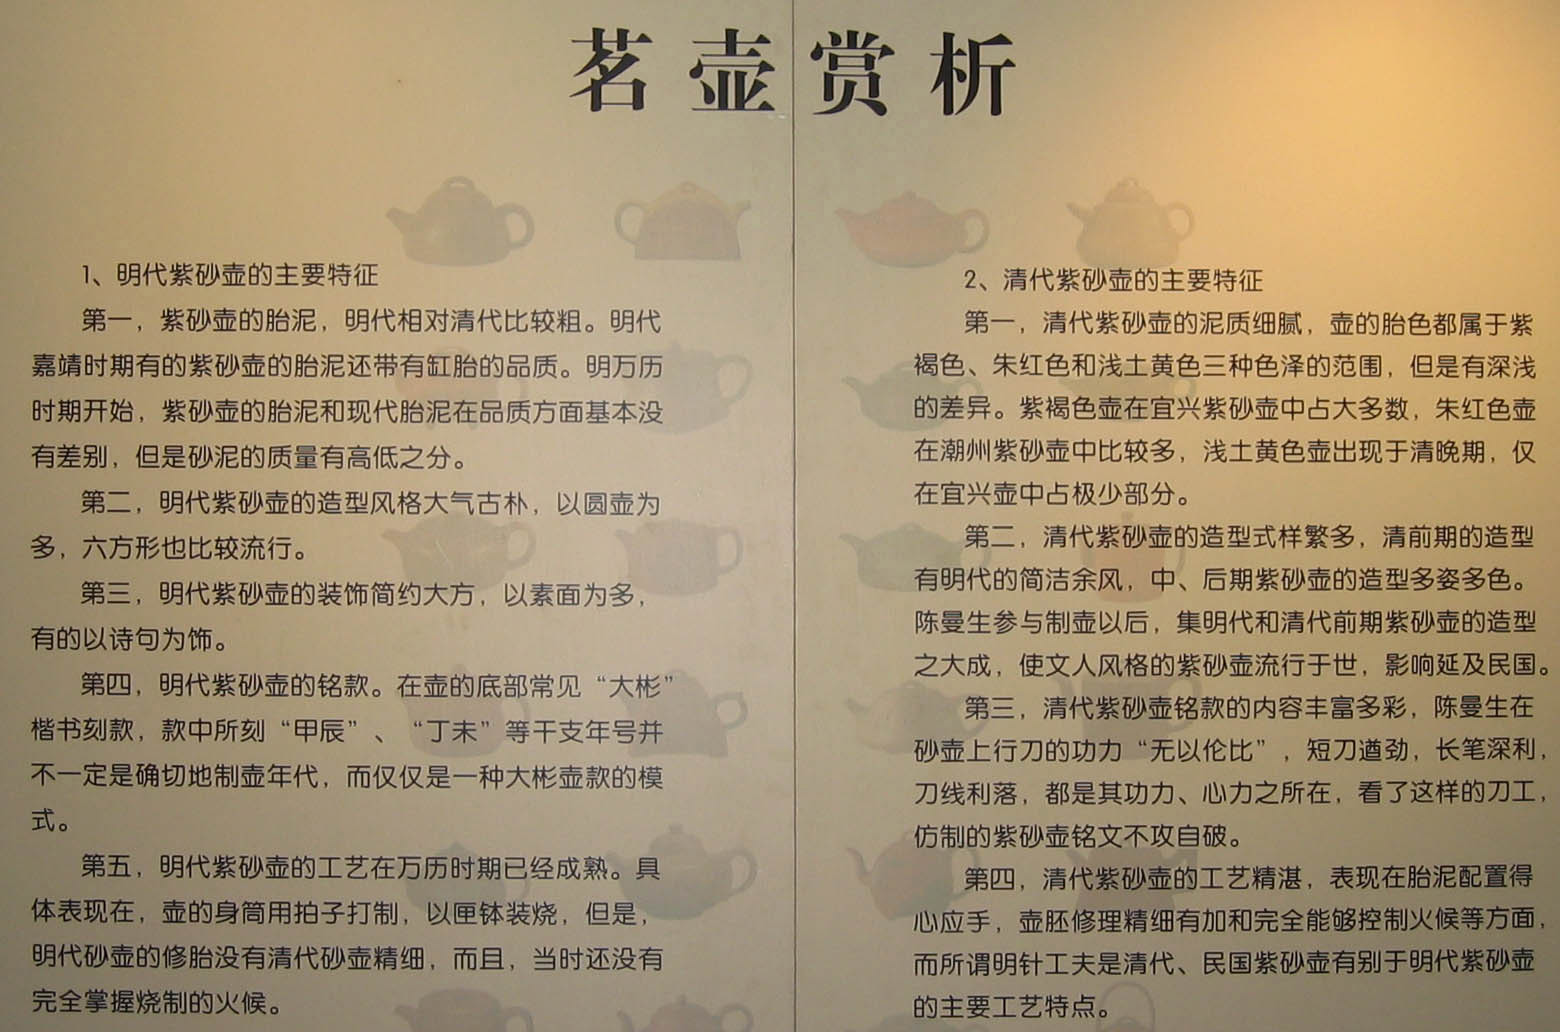 茗壶赏析
1、明代紫砂壶的主要特征
第一，紫砂壶的胎泥，明代相对清代比较粗。明代
嘉靖时期有的紫砂壶的胎泥还带有缸胎的品质。明万历
时期开始，紫砂壶的胎泥和现代胎泥在品质方面基本没
有差别，但是砂泥的质量有高低之分。
第二，明代紫砂壶的造型风格大气古朴，以圆壶为
多，六方形也比较流行。
第三，明代紫砂壶的装饰简约大方，以素面为多，
有的以诗句为饰。
第四，明代紫砂壶的铭款。在壶的底部常见“大彬”
楷书刻款，款中所刻“甲辰”、“丁未”等干支年号并
不一定是确切地制壶年代，而仅仅是一种大彬壶款的模
式。
第五，明代紫砂壶的工艺在万历时期已经成熟。具
体表现在，壶的身筒用拍子打制，以匣钵装烧，但是，
明代砂壶的修胎没有清代砂壶精细，而且，当时还没有
完全掌握烧制的火候。
2、清代紫砂壶的主要特征
第一，清代紫砂壶的泥质细腻，壶的胎色都属于紫
褐色、朱红色和浅土黄色三种色泽的范围，但是有深浅
的差异。紫褐色壶在宜兴紫砂壶中占大多数，朱红色壶
在潮州紫砂壶中比较多，浅土黄色壶出现于清晚期，仅
在宜兴壶中占极少部分。
第二，清代紫砂壶的造型式样繁多，清前期的造型
有明代的简洁余风，中、后期紫砂壶的造型多姿多色。
陈曼生参与制壶以后，集明代和清代前期紫砂壶的造型
之大成，使文人风格的紫砂壶流行于世，影响延及民国。
第三，清代紫砂壶铭款的内容丰富多彩，陈曼生在
砂壶上行刀的功力“无以伦比”，短刀遒劲，长笔深利，
刀线利落，都是其功力、心力之所在，看了这样的刀工，
仿制的紫砂壶铭文不攻自破。
第四，清代紫砂壶的工艺精湛，表现在胎泥配置得
心应手，壶胚修理精细有加和完全能够控制火候等方面，
而所谓明针工夫是清代、民国紫砂壶有别于明代紫砂壶
的主要工艺特点。